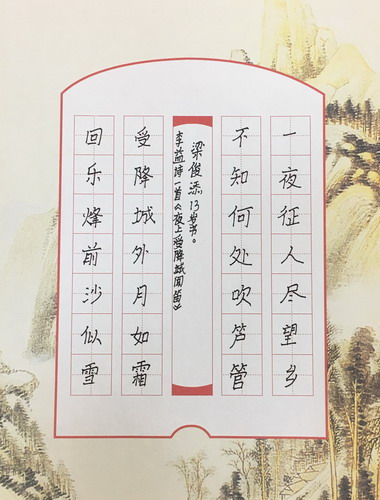 回乐烽前沙似雪
受降城外月如霜
李益诗一首《夜上受降城闻笛》
梁俊添13岁书。
不知何处吹芦管
一夜征人尽望乡